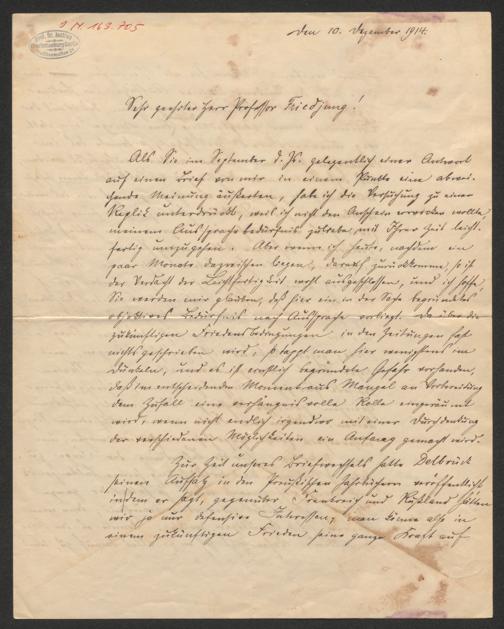 I N. 163.705
Den 10. Dezember 1914.
Sehr geehrter Herr Professor Friedjung!
Als Sie im September d. Js. gelegentlich einer Antwort
auf einen Brief von mir in einem Punkte eine abwei-
chende Meinung äußerten, habe ich die Versuchung zu einer
Replik unterdrückt, weil ich nicht den Anschein erwecken wollte,
meinem Aussprachebedürfnis zuliebe, mit Ihrer Zeit leicht-
fertig umzugehen. Aber wenn ich heute, nachdem ein
paar Monate dazwischen liegen, darauf zurückkomme, so ist
der Verdacht der Leichtfertigkeit wohl ausgeschlossen, und ich hoffe,
Sie werden mir glauben, daß hier ein in der Sache begründetes
objektives Bedürfnis nach Aussprache vorliegt. Da über die
zukünftigen Friedensbedingungen in den Zeitungen fast
nichts geschrieben wird, so tappt man hier wenigstens im
Dunkeln, und es ist ernstlich begründete Gefahr vorhanden,
daß im entscheidenden Moment aus Mangel an Vorbereitung
dem Zufall eine verhängnisvolle Rolle eingeräumt
wird, wenn nicht endlich irgendwo mit einer Durchdenkung
der verschiedenen Möglichkeiten ein Anfang gemacht wird.
Zur Zeit unseres Briefwechsels hatte Delbrück
seinen Aufsatz in den Preußischen Jahrbüchern veröffentlicht
indem er sagt, gegenüber Frankreich und Rußland hätten
wir ja nur defensive Interessen, man könne also in
einem zukünftigen Frieden seine ganze Kraft auf